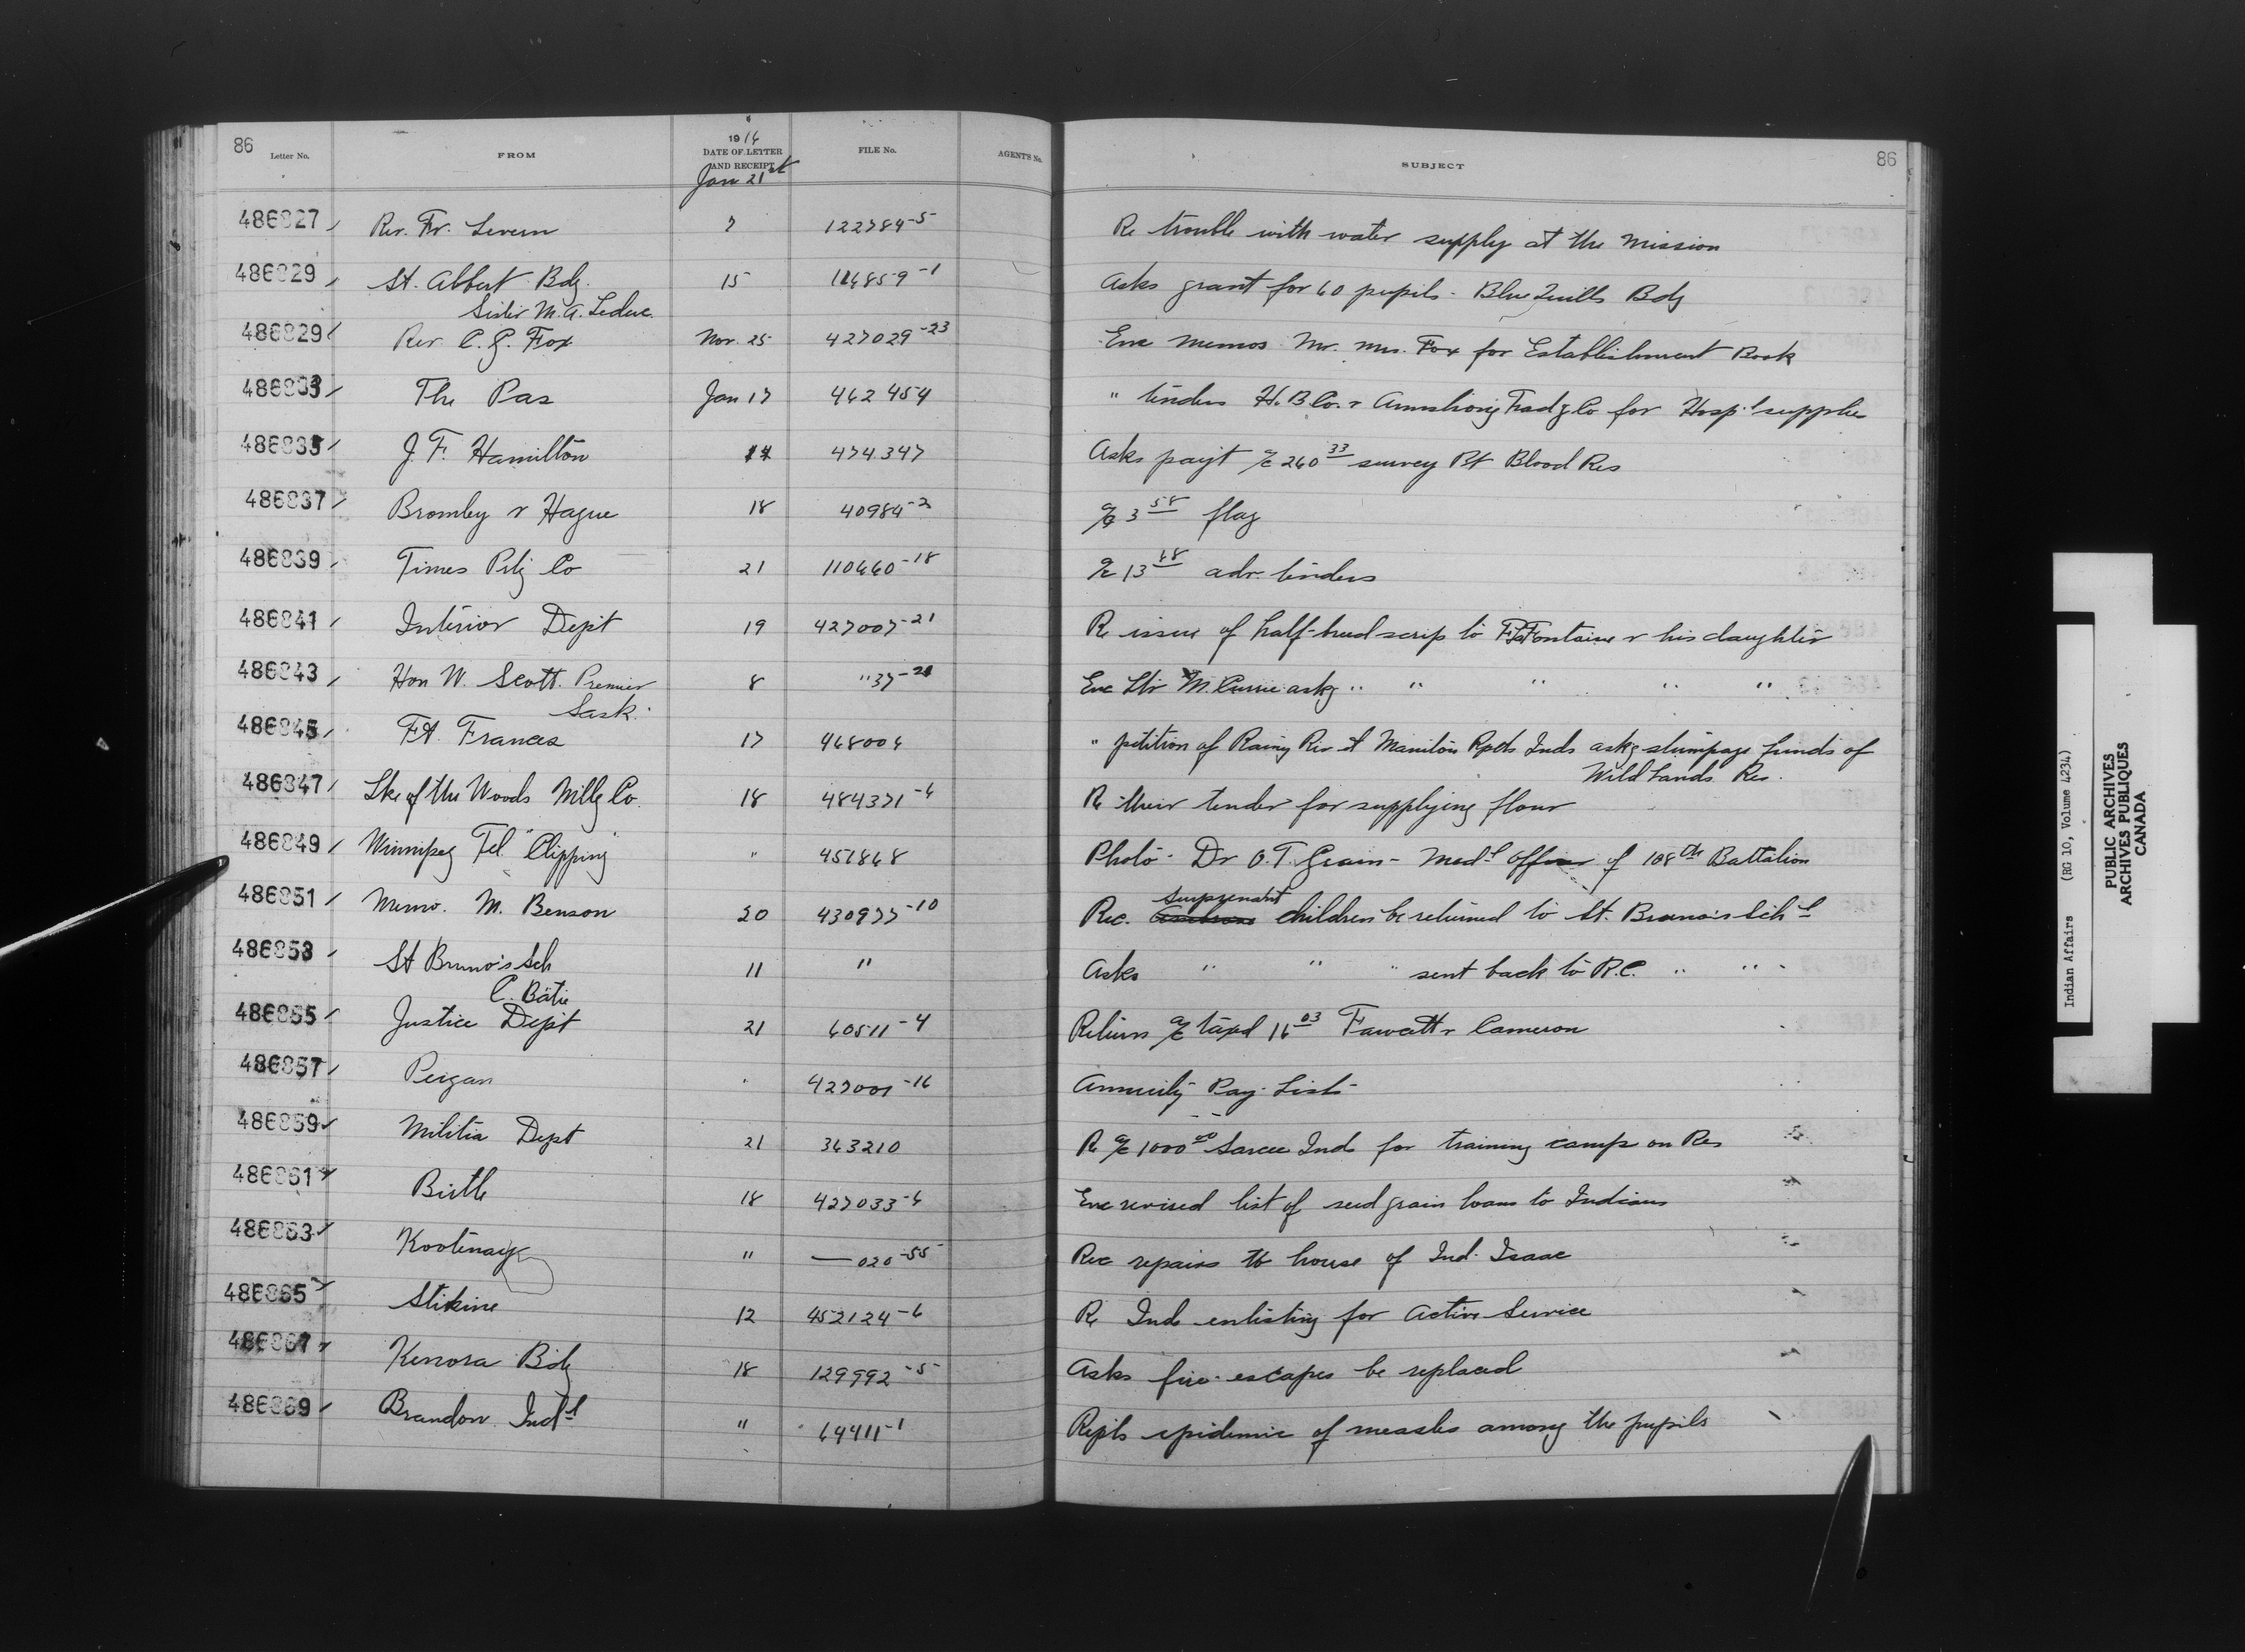 86
Letter No. FROM 1916 DATE OF LETTER AND RECEIPT FILE No. AGENT'S No. SUBJECT 86
Jan 21st
486827 Rev. Fr. Levern 7 122784-5 Re trouble with water supply at the Mission
486829 St. Albert Bdg. 15 116859-1 Asks grant for 60 pupils - Blue Quills Bdg
Sister M. A. Leduc
486829 Rev C. G. Fox Nov. 25 427029-23 Enc memos Mr. Mrs. Fox for Establishment Book
486833 The Pas Jan 17 462454 " tenders H. B. Co. & Armstrong Tradg Co for Hospl supplies
486835 J. F. Hamilton 14 474347 Asks payt a/c 260 33 survey Pt Blood Res
486837 Bromley & Hague 18 40984-2 a/c 3 58 flag
486839 Times Ptg Co 21 110660-18 a/c 13 68 adv. tenders
486841 Interior Dept 19 427007-21 Re issue of half-breed scrip to P. LaFontaine & his daughter
486843 Hon W. Scott. Premier 8 " 37-21 Enc ltr M. Currie askg " " " " "
Sask.
486845 Ft. Frances 17 468006 " petition of Rainy Riv & Manitou Rpds Inds askg stumpage funds of
Wild Lands Res.
486847 Lke of the Woods Millg Co. 18 484371-6 Re their tender for supplying flour
486849 Winnipeg Tel. "Clipping" " 451868 Photo - Dr O. T. Grain - Medl Officer of 108th Battalion
486851 Memo. M. Benson 20 430977-10 Rec. children be returned to St. Bruno's Schl
486853 St Bruno's Sch 11 " Asks " " " sent back to R.C. " "
C. Batie
486855 Justice Dept 21 60511-4 Returns a/c taxed 16 03 Fawcett & Cameron
486857 Peigan " 427001-16 Annuity Pay-Lists
486859 Militia Dept 21 363210 Re a/c 1000 00 Sarcee Inds for training camp on Res
486861 Birtle 18 427033-6 Enc revised list of seed grain loans to Indians
486863 Kootenay " — 020-55 Rec repairs to house of Ind. Isaac
486865 Stikine 12 452124-6 Re Inds enlisting for Active Service
486867 Kenora Bdg 18 129992-5 Asks fire-escapes be replaced
486869 Brandon Indl " 69411-1 Repts epidemic of measles among the pupils
Indian Affairs (RG 10, Volume 4234)
PUBLIC ARCHIVES
ARCHIVES PUBLIQUES
CANADA